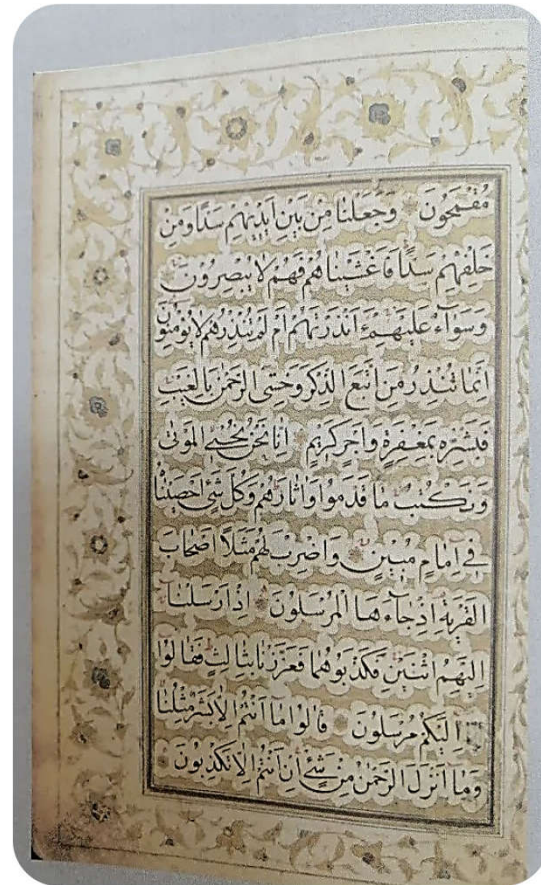 مُقْمَحُونَ وَجَعَلْنَا مِنْ بَيْنِ اَيْدِيهِمْ سَدًّا وَمِنْ
خَلْفِهِمْ سَدًّا فَاَغْشَيْنَاهُمْ فَهُمْ لَا يُبْصِرُونَ
وَسَوَآءٌ عَلَيْهِمْ ءَاَنْذَرْتَهُمْ اَمْ لَمْ تُنْذِرْهُمْ لَا يُؤْمِنُونَ
اِنَّمَا تُنْذِرُ مَنِ اتَّبَعَ الذِّكْرَ وَخَشِىَ الرَّحْمٰنَ بِالْغَيْبِ
فَبَشِّرْهُ بِمَغْفِرَةٍ وَاَجْرٍ كَرِيمٍ اِنَّا نَحْنُ نُحْيِى الْمَوْتٰى
وَنَكْتُبُ مَا قَدَّمُوا وَاٰثَارَهُمْ وَكُلَّ شَىْءٍ اَحْصَيْنَاهُ
فِى اِمَامٍ مُبِينٍ وَاضْرِبْ لَهُمْ مَثَلًا اَصْحَابَ
الْقَرْيَةِ اِذْ جَآءَهَا الْمُرْسَلُونَ اِذْ اَرْسَلْنَآ
اِلَيْهِمُ اثْنَيْنِ فَكَذَّبُوهُمَا فَعَزَّزْنَا بِثَالِثٍ فَقَالُوٓا
اِلَيْكُمْ مُرْسَلُونَ قَالُوا مَآ اَنْتُمْ اِلَّا بَشَرٌ مِثْلُنَا
وَمَآ اَنْزَلَ الرَّحْمٰنُ مِنْ شَىْءٍ اِنْ اَنْتُمْ اِلَّا تَكْذِبُونَ